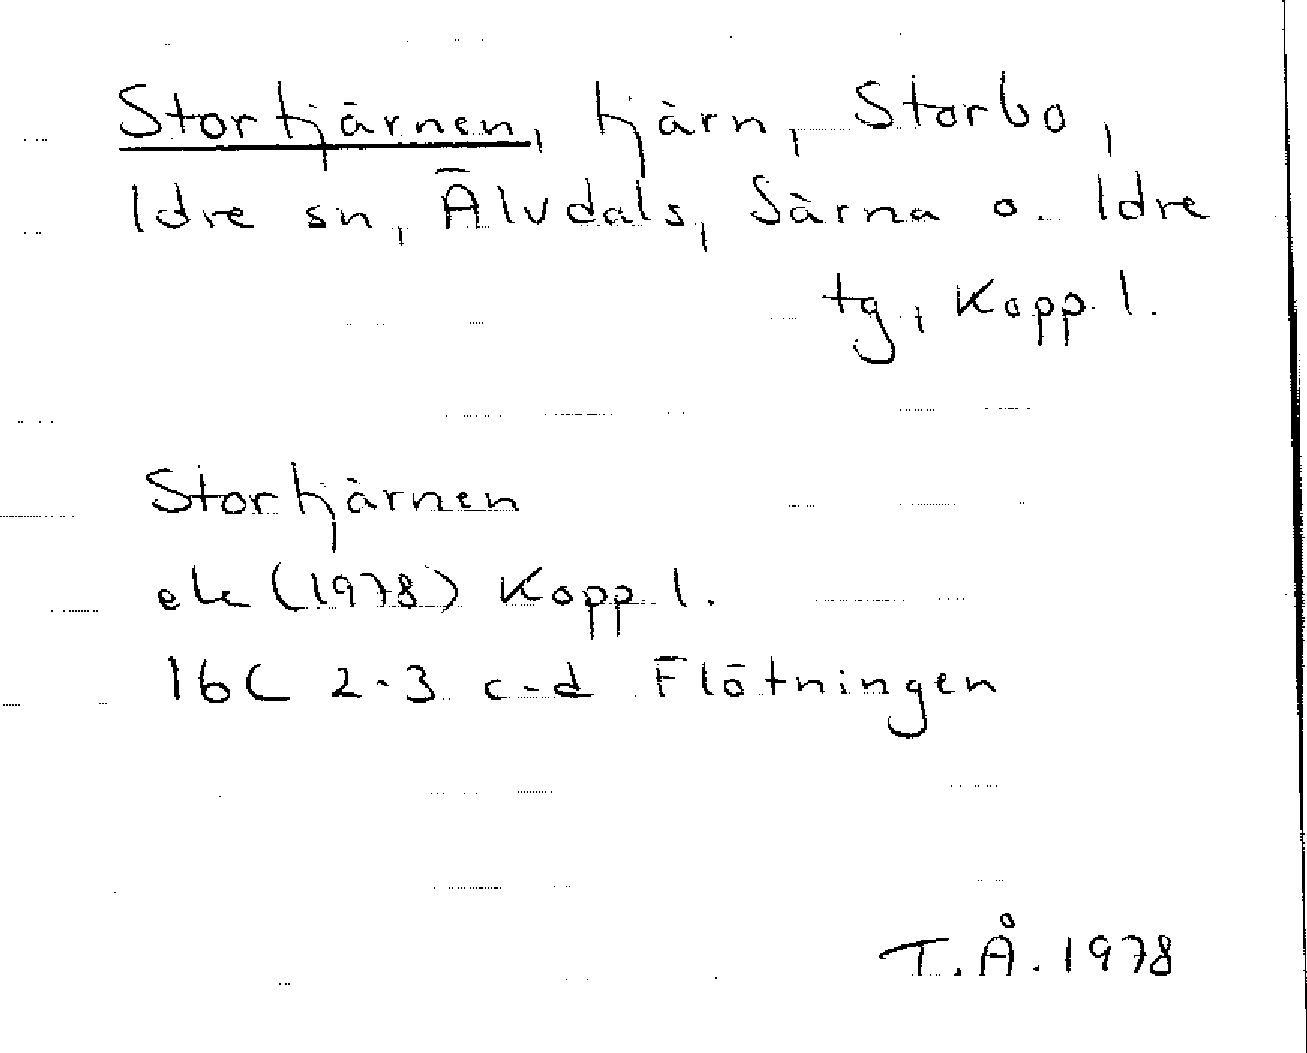 Stortjärnen, tjärn, Storbo,
Idre sn, Älvdals, Särna o. Idre
tg, Kopp. l.
Stortjärnen
ek (1978) Kopp. l.
16C 2-3 c-d Flötningen
T.Å. 1978